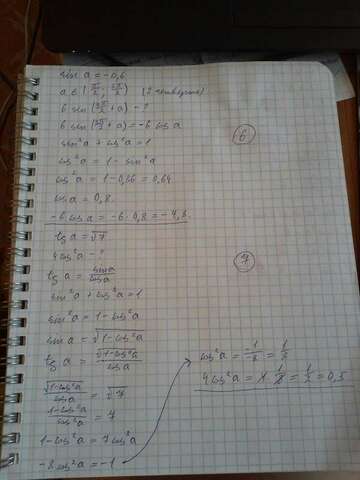 sin a = -0,6
a ∈ (π/2; 3π/2) (2 четверть)
6 sin(3π/2 + a) - ?
6 sin(3π/2 + a) = -6 cos a
sin²a + cos²a = 1
cos²a = 1 - sin²a
cos²a = 1 - 0,36 = 0,64
cos a = 0,8
-6 cos a = -6 · 0,8 = -4,8
6
tg a = √7
4cos²a - ?
7
tg a = sin a / cos a
sin²a + cos²a = 1
sin²a = 1 - cos²a
sin a = √(1-cos²a)
tg a = √(1-cos²a) / cos a
√(1-cos²a) / cos a = √7
1-cos²a / cos²a = 7
1 - cos²a = 7cos²a
-8 cos²a = -1
cos²a = -1/-8 = 1/8
4cos²a = 4 · 1/8 = 1/2 = 0,5